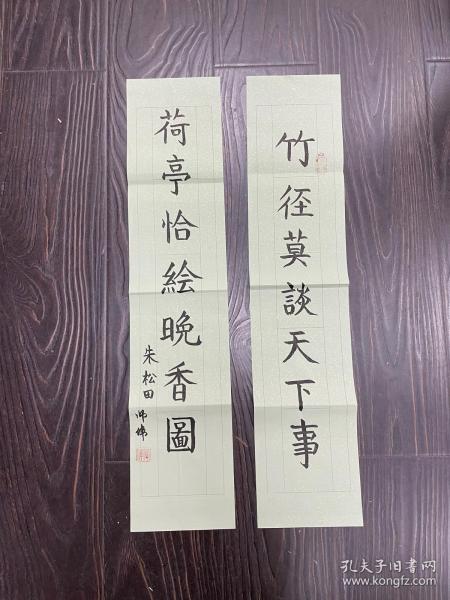 竹径莫談天下事
荷亭恰绘晚香圖
朱松田
孔夫子旧书网
www.kongfz.com